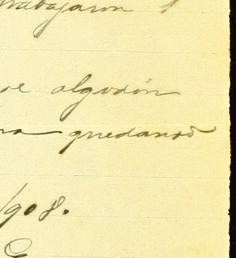 trabajaron 1
de algodón
quedando
1908.
G